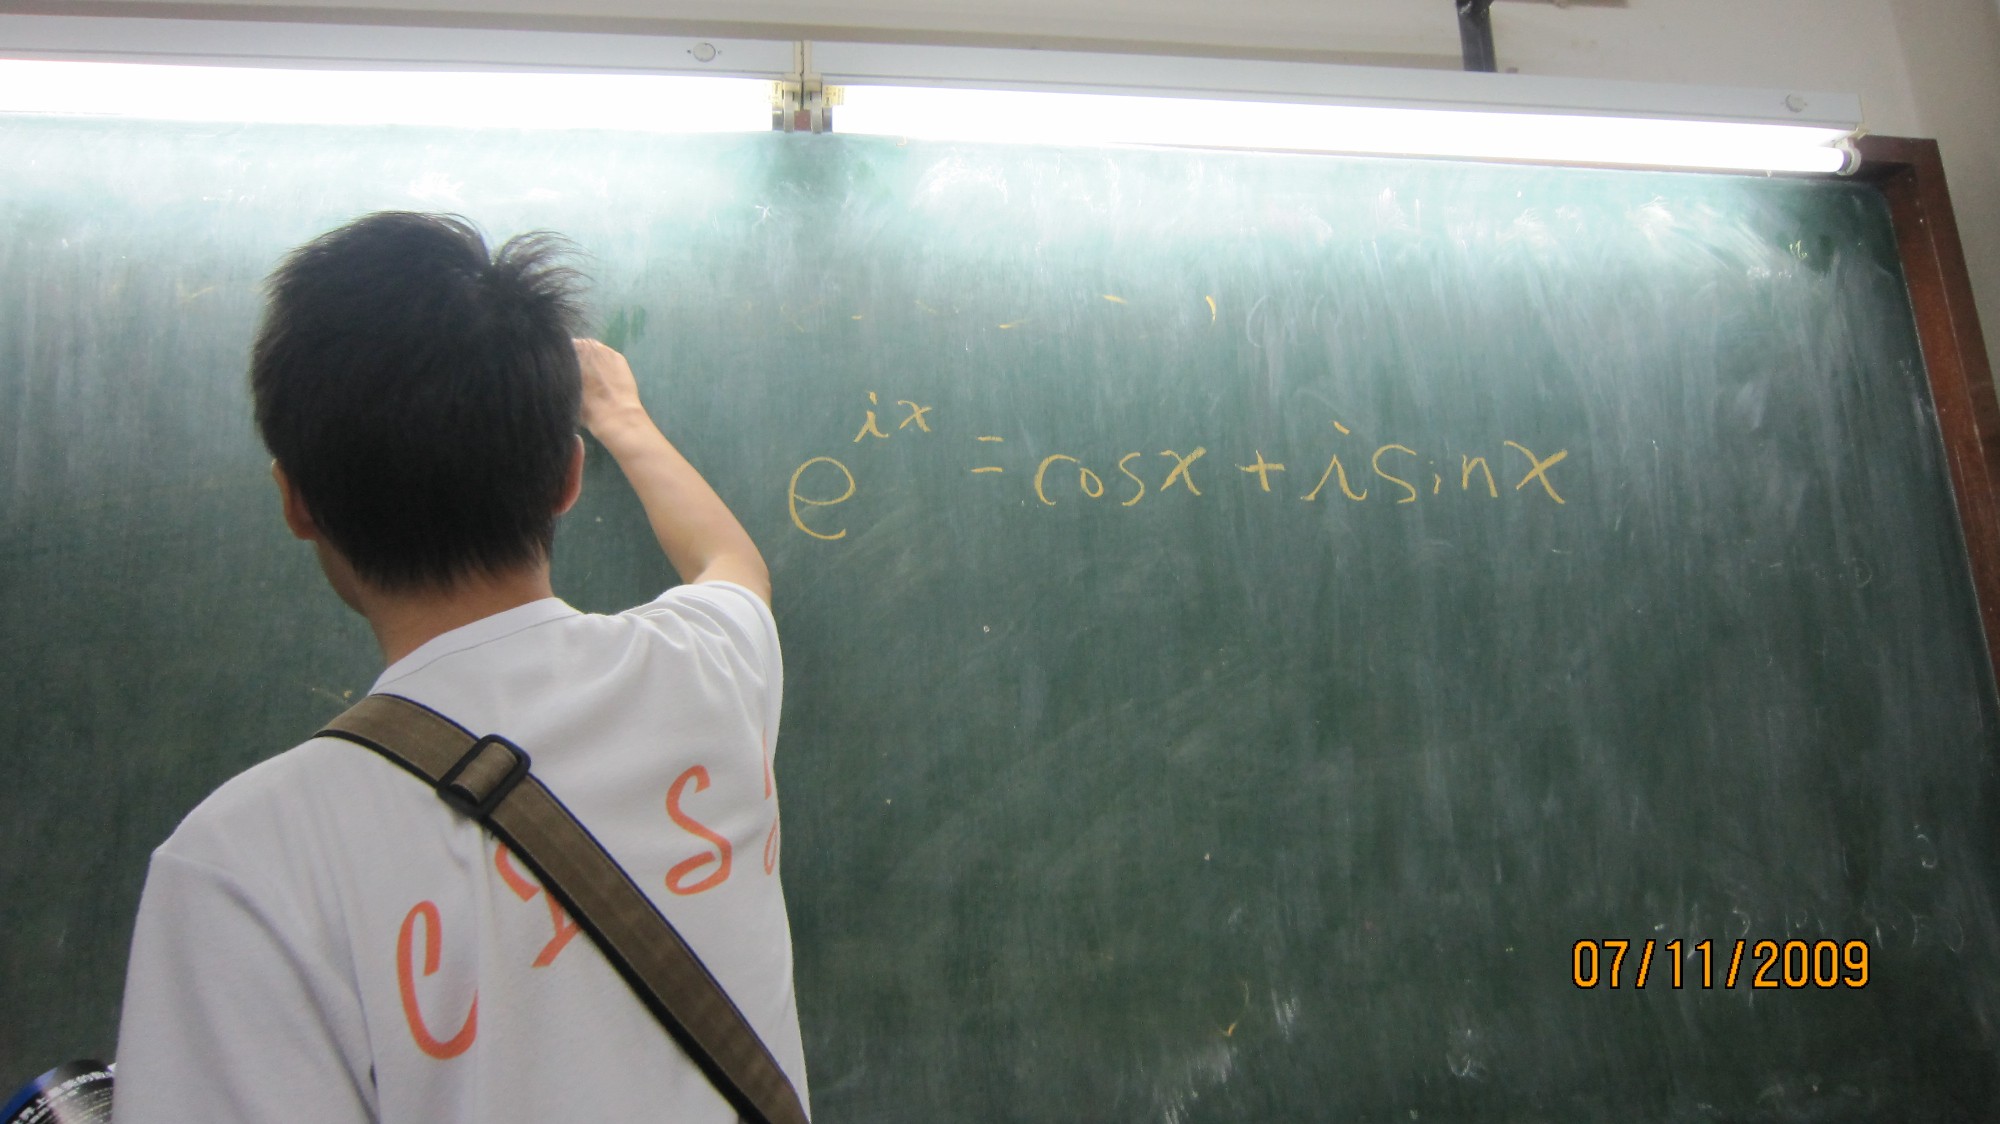 e^{ix} = cosx + isinx
C I S
07/11/2009